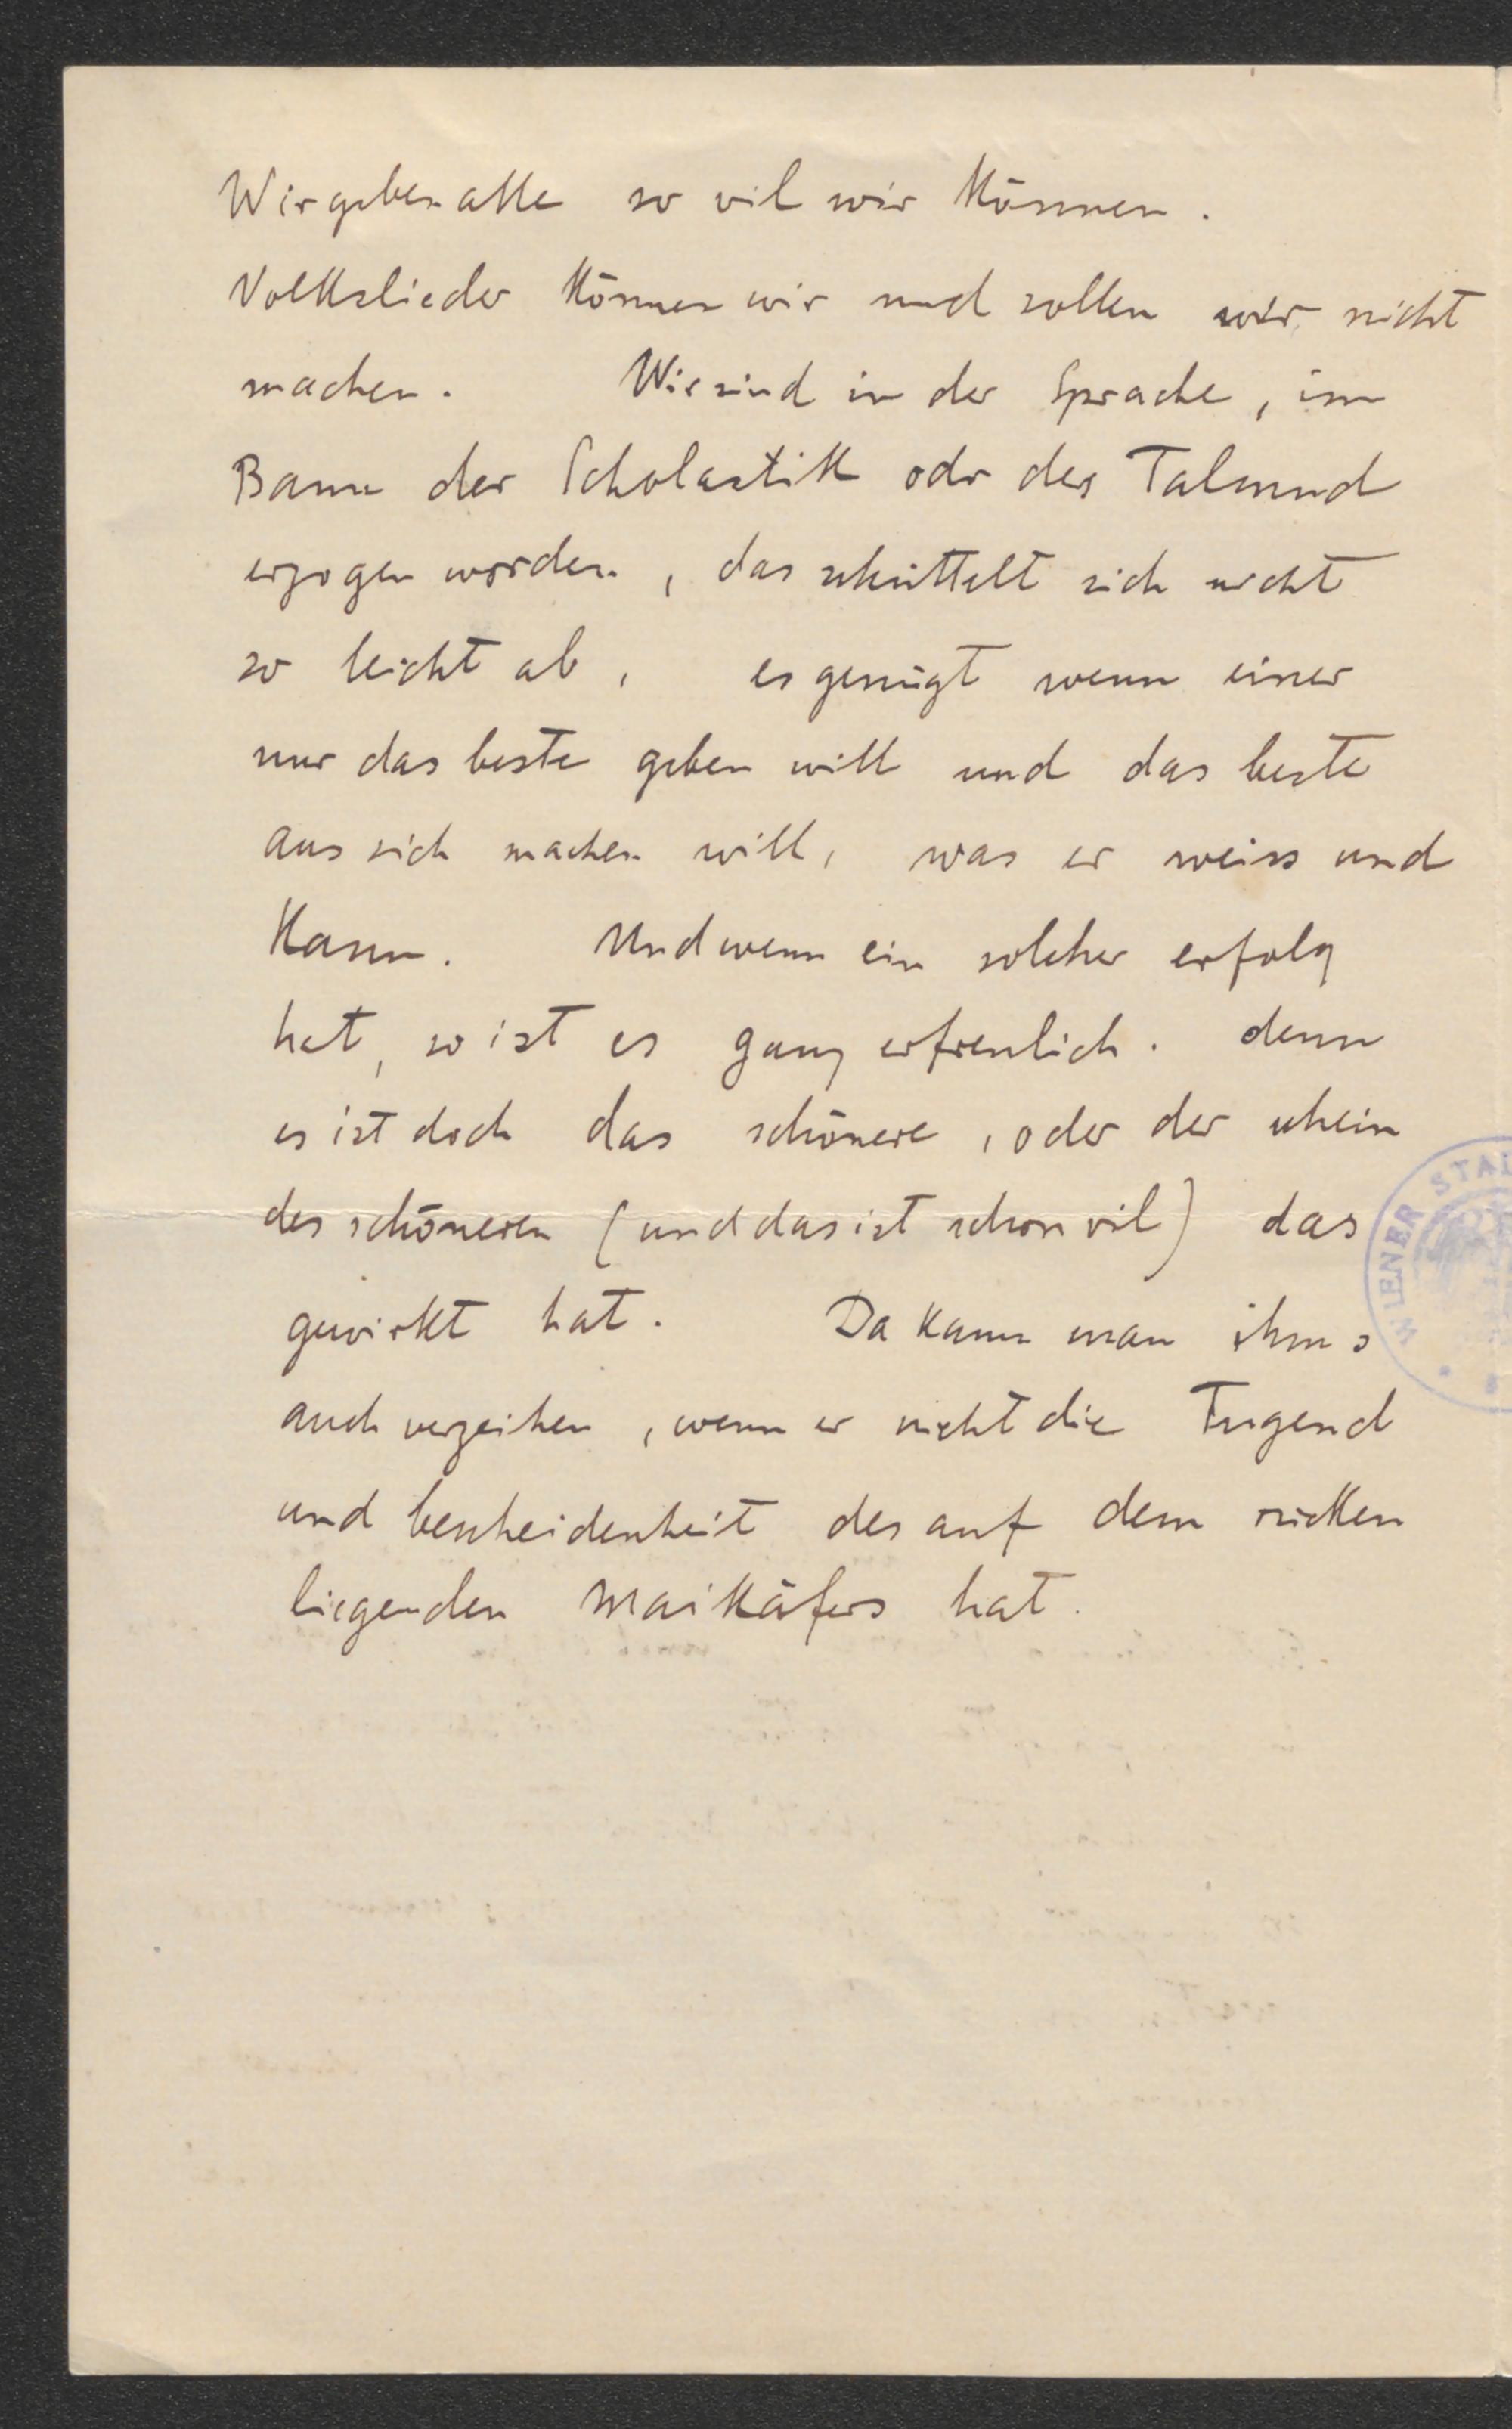 Wir geben alle so vil wir können.
Volkslieder können wir und sollen wir nicht
machen. Wir sind in der Sprache, im
Bann der Scholastik odr des Talmud
erzogen worden, das schüttelt sich nicht
so leicht ab, es genügt wenn einer
nur das beste geben will und das beste
aus sich machen will, was er weiss und
kann. Und wenn ein solcher erfolg
hat, so ist es ganz erfreulich. denn
es ist doch das schönere, oder der schein
des schöneren (und das ist schon vil) das
gewirkt hat. Da kann man ihm s
auch verzeihen, wenn er nicht die Tugend
und bescheidenheit des auf dem rücken
liegenden Maikäfers hat.
WIENER STA